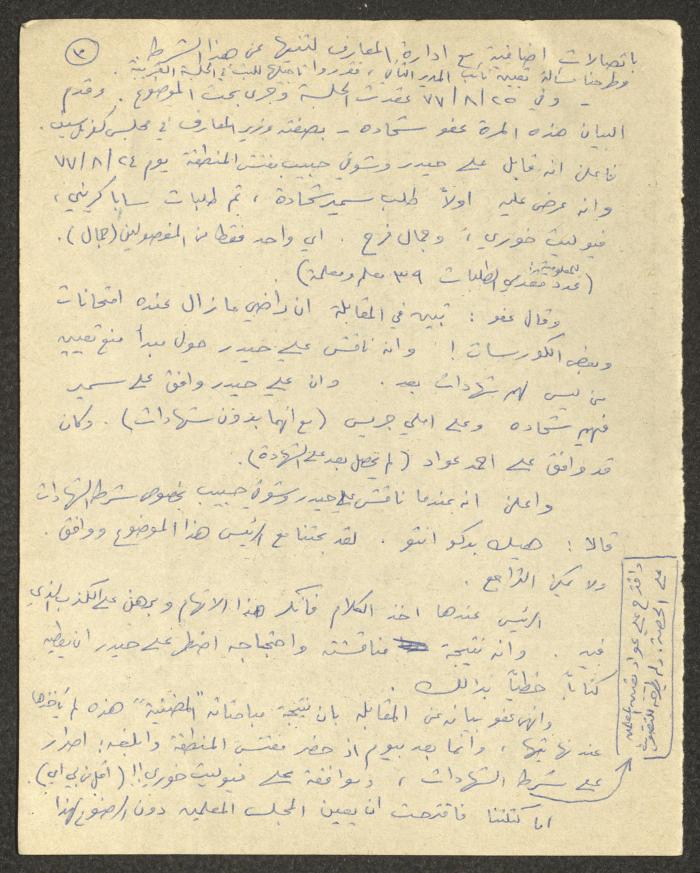 ٣
باتصالات اضافية مع ادارة المعارف لتثنيها عن هذا الشرط
وطرحنا مسألة تعيين نائب المدير الثاني، فقرروا تأجيلها للبت في الجلسة القريبة.
- وفي ٧٧/٨/٢٥ عقدت الجلسة وجرى بحث الموضوع. وقدم
البيان هذه المرة عفو شحاده - بصفته وزير المعارف في مجلس
فأعلن انه قابل علي حيدر وشوقي حبيب مفتش المنطقة يوم ٧٧/٨/٢٤
وانه عرض عليه اولاً طلب سمير شحادة، ثم طلبات سابا كريني،
فيوليت خوري، وجمال فرح. اي واحد فقط من المفصولين (جمال).
(للمعلومية: عدد مقدمي الطلبات ٣٩ معلم ومعلمة)
وقال عفو: تبين في المقابلة ان راضي ما زال عنده امتحانات
وبعض الكورسات! وانه ناقش علي حيدر حول مبدأ منع تعيين
من ليس لهم شهادات بعد. وان علي حيدر وافق على سمير
فهيم شحاده وعلى املي جريس (مع انهما بدون شهادات). وكان
قد وافق على احمد عواد (لم يحصل بعد على الشهادة).
واعلن انه عندما ناقش علي حيدر وشوقي حبيب بخصوص شرط الشهادات
قالا: هيك بدكو انتو. لقد بحثنا مع الرئيس هذا الموضوع ووافق.
ولا يمكن التراجع.
الرئيس عندها اخذ الكلام فأنكر هذا الاتهام وبرهن على الكذب الذي
فيه. وانه نتيجة مناقشته واحتجاجه اضطر علي حيدر ان يعطيه
كتاباً خطياً بذلك.
وانهى عفو بيانه عن المقابلة بان نتيجة مباحثاته "المضنية" هذه لم يأخذها
عند نهايتها، وانما بعد بيوم اذ حضر مفتش المنطقة وابلغه: اصرار
على شرط الشهادات، وموافقة على فيوليت خوري!! (اقل من بي اي).
اما كتلتنا فاقترحت ان يعين المجلس المعلمين دون الرضوخ لهذا
واقترح علي عواد تعيين
على الحصة. ولم يطرحه للتصويت